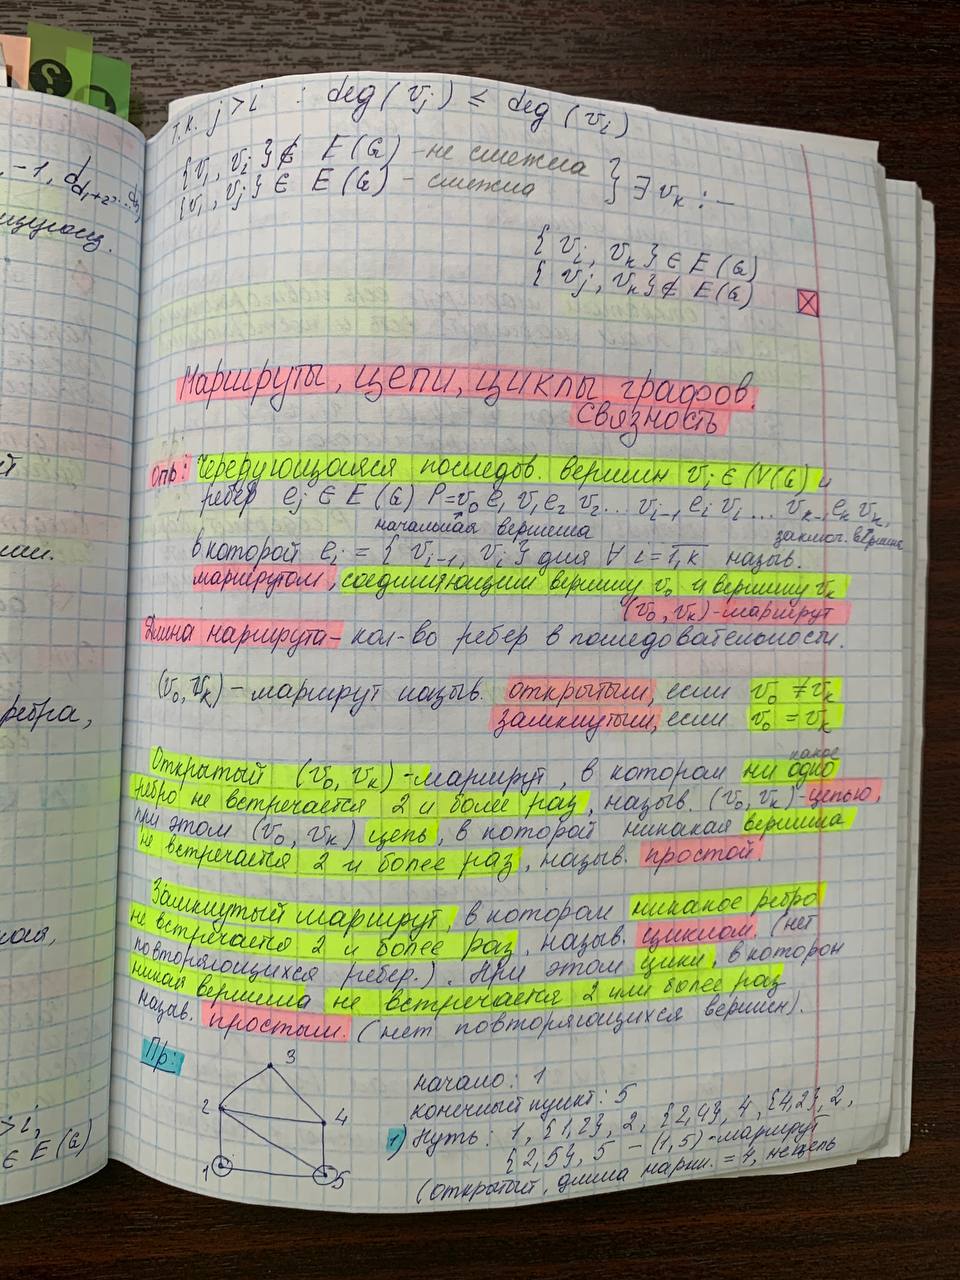 -1, d d₁+2, ...
т.к. j > i : deg(vj) ≤ deg(vi)
{v₁, vi} ∉ E(G) - не смежна
{v₁, vj} ∈ E(G) - смежна } ∃ vk : -
{vi, vk} ∈ E(G)
{vj, vk} ∉ E(G)
Маршруты, цепи, циклы графов.
Связность
Опр: Чередующаяся последов. вершин vi ∈ V(G) и
ребер ej ∈ E(G) P = v₀ e₁ v₁ e₂ v₂ ... vi-1 ei vi ... vk-1 ek vk,
начальная вершина заключ. вершина
в которой ei = {vi-1, vi} для ∀ i = 1,k назыв.
маршрутом, соединяющим вершину v₀ и вершину vk
(v₀, vk) - маршрут
Длина маршрута - кол-во ребер в последовательности.
(v₀, vk) - маршрут назыв. открытым, если v₀ ≠ vk
замкнутым, если v₀ = vk
какое
Открытый (v₀, vk) - маршрут, в котором ни одно
ребро не встречается 2 и более раз, назыв. (v₀, vk) - цепью,
при этом (v₀, vk) цепь, в которой никакая вершина
не встречается 2 и более раз, назыв. простой.
Замкнутый маршрут, в котором никакое ребро
не встречается 2 и более раз, назыв. циклом. (нет
повторяющихся ребер.). При этом цикл, в котором
никая вершина не встречается 2 или более раз
назыв. простым. (нет повторяющихся вершин).
Пр:
3
2
4
1
5
начало: 1
конечный пункт: 5
1) Путь: 1, {1,2}, 2, {2,4}, 4, {4,2}, 2,
{2,5}, 5 - (1,5) - маршрут
(открытый, длина марш. = 4, не цепь
ребра,
> i,
∈ E(G)